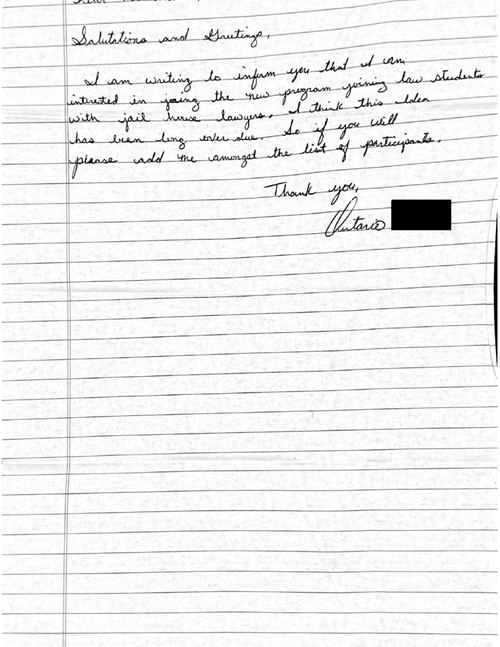 Salutations and Greetings,
I am writing to inform you that I am
intrested in joing the new program joining law students
with jail house lawyers. I think this Idea
has been long over due. So if you will
please add me amongst the list of participants.
Thank you,
Ontario